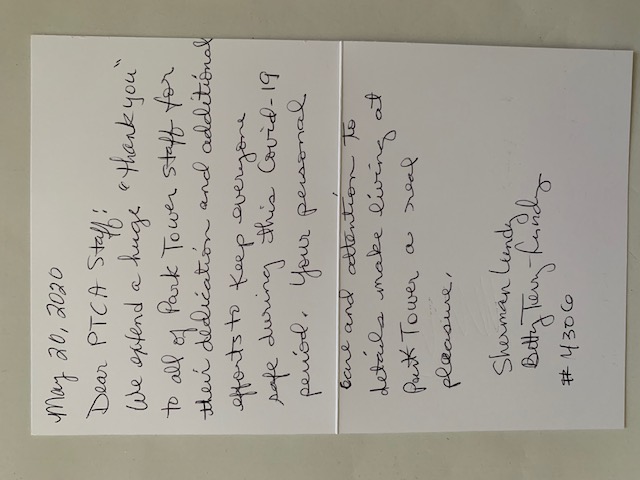 May 20, 2020
Dear PTCA Staff:
We extend a huge "thank you"
to all of Park Tower staff for
their dedication and additional
efforts to keep everyone
safe during this Covid-19
period. Your personal
care and attention to
details make living at
Park Tower a real
pleasure.
Sherman Lundy
Betty Terry-Lundy
# 4306